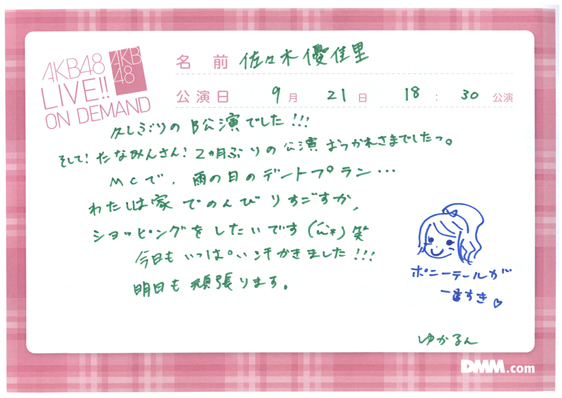 AKB48
LIVE!!
ON DEMAND
AKB
48
名前 佐々木優佳里
公演日 9月 21日 18:30公演
久しぶりのB公演でした!!!
そして!たなみんさん!2ヶ月ぶりの公演おつかれさまでしたっ。
MCで、雨の日のデートプラン…
わたしは家でのんびりすごすか、
ショッピングをしたいです(笑)笑
今日もいっぱい汗かきました!!!
明日も頑張ります。
ポニーテールが
一番すき
ゆかるん
DMM.com